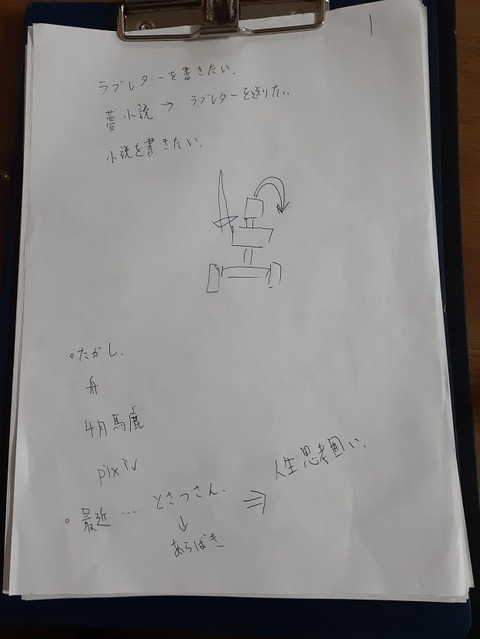 1
ラブレターを書きたい.
夢小説 → ラブレターを送りたい
小説を書きたい.
。たかし.
舟
4月馬鹿
pixiv
。最近 … とさつさん. ⇒ 人生思考囲い.
↓
あらばき